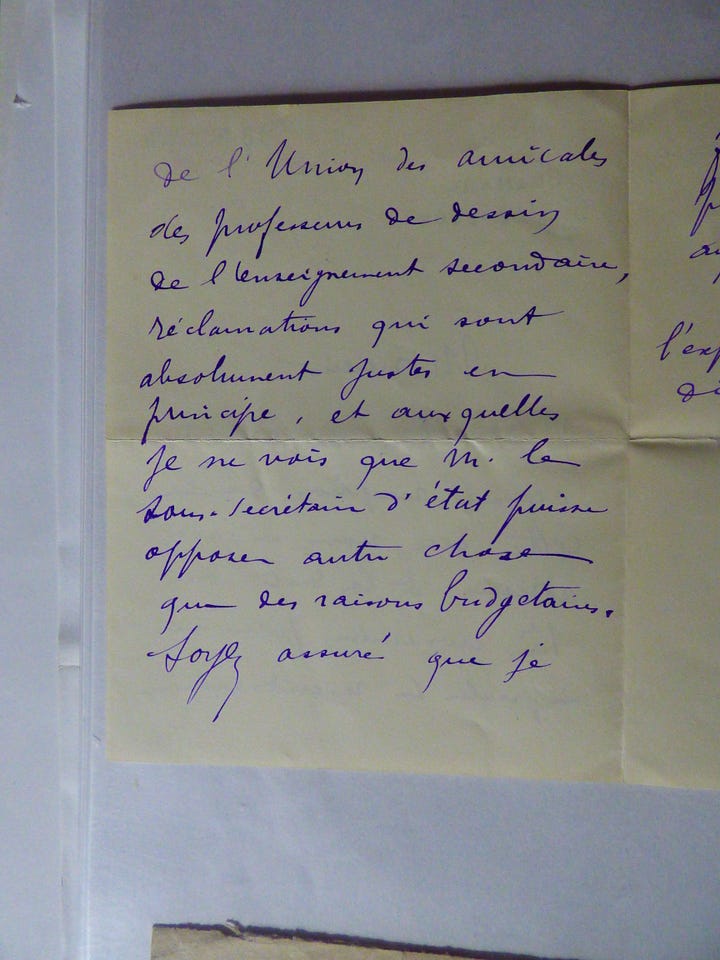 de l'Union des amicales
des professeurs de dessin
de l'enseignement secondaire,
réclamations qui sont
absolument justes en
principe, et auxquelles
je ne vois que M. le
Sous-secrétaire d'état puisse
opposer autre chose
que des raisons budgétaires.
Soyez assuré que je
l'exp